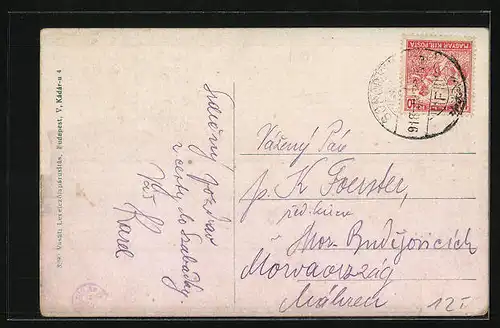 Srdečný pozdrav
z cesty do Szabadky.
Váš
Karel
Vážený Pán
p. K Foerster,
Mor. Budějovicích
Morvaország
Mähren
12.-
MAGYAR KIR. POSTA
10
918
Vasúti Levelezőlapárusítás, Budapest, V, Kádár-u 4